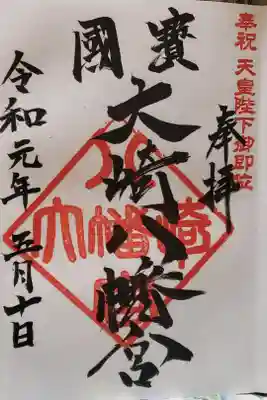 奉祝 天皇陛下御即位
奉拝
國寳
大崎八幡宮
令和元年 五月十日